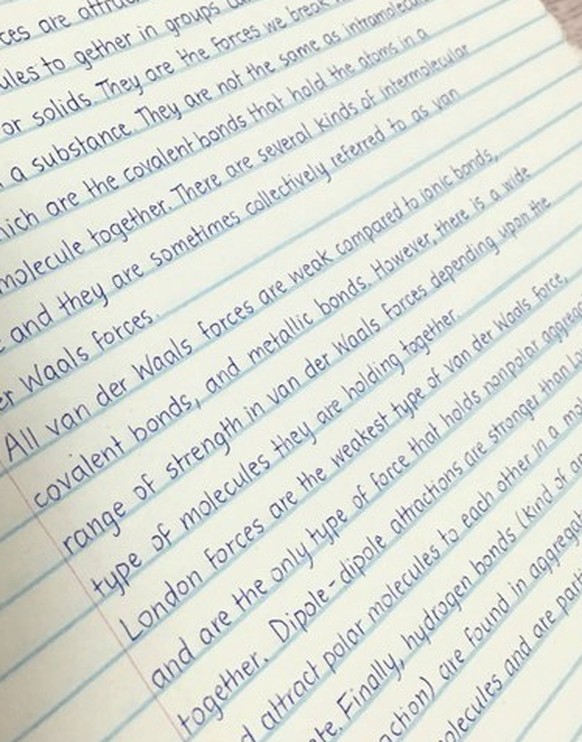 ces are
ules to gether in groups
or solids. They are the forces we break
a substance. They are not the same as intramolecular
hich are the covalent bonds that hold the atoms in a
molecule together. There are several kinds of intermolecular
and they are sometimes collectively referred to as van
er Waals forces.
All van der Waals forces are weak compared to ionic bonds,
covalent bonds, and metallic bonds. However, there is a wide
range of strength in van der Waals forces depending upon the
type of molecules they are holding together.
London forces are the weakest type of van der Waals force,
and are the only type of force that holds nonpolar aggre
together. Dipole-dipole attractions are stronger than
d attract polar molecules to each other in a
te. Finally, hydrogen bonds (kind of
action) are found in aggrega
olecules and are